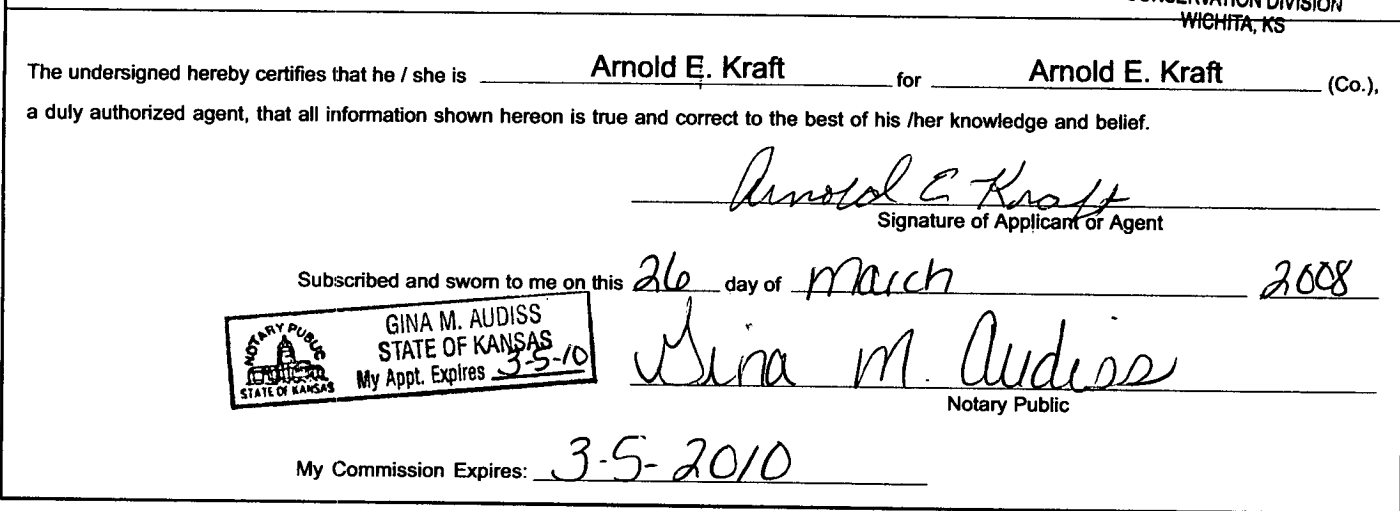 CONSERVATION DIVISION
WICHITA, KS
The undersigned hereby certifies that he / she is Arnold E. Kraft for Arnold E. Kraft (Co.),
a duly authorized agent, that all information shown hereon is true and correct to the best of his /her knowledge and belief.
Arnold E Kraft
Signature of Applicant or Agent
Subscribed and sworn to me on this 26 day of March 2008
NOTARY PUBLIC
STATE OF KANSAS
GINA M. AUDISS
STATE OF KANSAS
My Appt. Expires 3-5-10
Gina M. Audiss
Notary Public
My Commission Expires: 3-5-2010